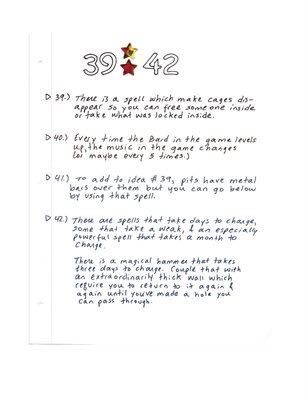 39 42
▷ 39.) There is a spell which make cages dis-
appear so you can free someone inside
or take what was locked inside.
▷ 40.) Every time the Bard in the game levels
up, the music in the game changes
(or maybe every 5 times.)
▷ 41.) To add to idea #39, pits have metal
bars over them but you can go below
by using that spell.
▷ 42.) There are spells that take days to charge,
some that take a weak, & an especially
powerful spell that takes a month to
charge.
There is a magical hammer that takes
three days to charge. Couple that with
an extraordinarily thick wall which
require you to return to it again &
again until you've made a hole you
can pass through.